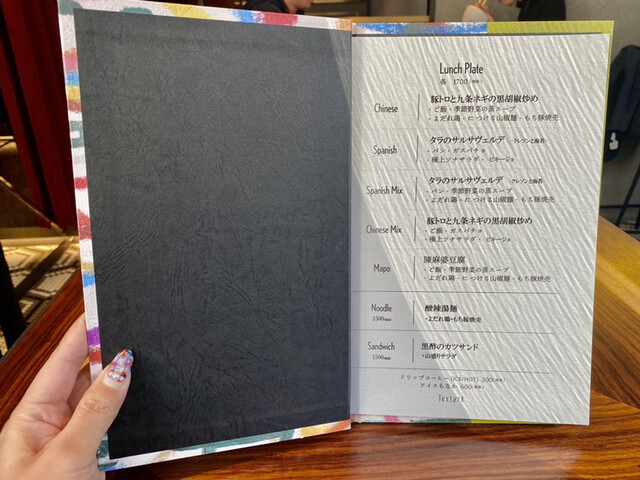 Lunch Plate
各 1700(税込)
Chinese 豚トロと九条ネギの黒胡椒炒め
・ご飯・季節野菜の蒸スープ
・よだれ鶏・につける山椒麺・もち豚焼売
Spanish タラのサルサヴェルデ -クレソンと海苔-
・パン・ガスパチョ
・極上ツナサラダ・ピキージョ
Spanish Mix タラのサルサヴェルデ -クレソンと海苔-
・パン・季節野菜の蒸スープ
・よだれ鶏・につける山椒麺・もち豚焼売
Chinese Mix 豚トロと九条ネギの黒胡椒炒め
・ご飯・ガスパチョ
・極上ツナサラダ・ピキージョ
Mapo 陳麻婆豆腐
・ご飯・季節野菜の蒸スープ
・よだれ鶏・につける山椒麺・もち豚焼売
Noodle 酸辣湯麺
1500(税込) ・よだれ鶏・もち豚焼売
Sandwich 黒酢のカツサンド
1500(税込) ・山盛りサラダ
ドリップコーヒー(ICE/HOT) 300(税込)
アイスもなか 600(税込)
Textard